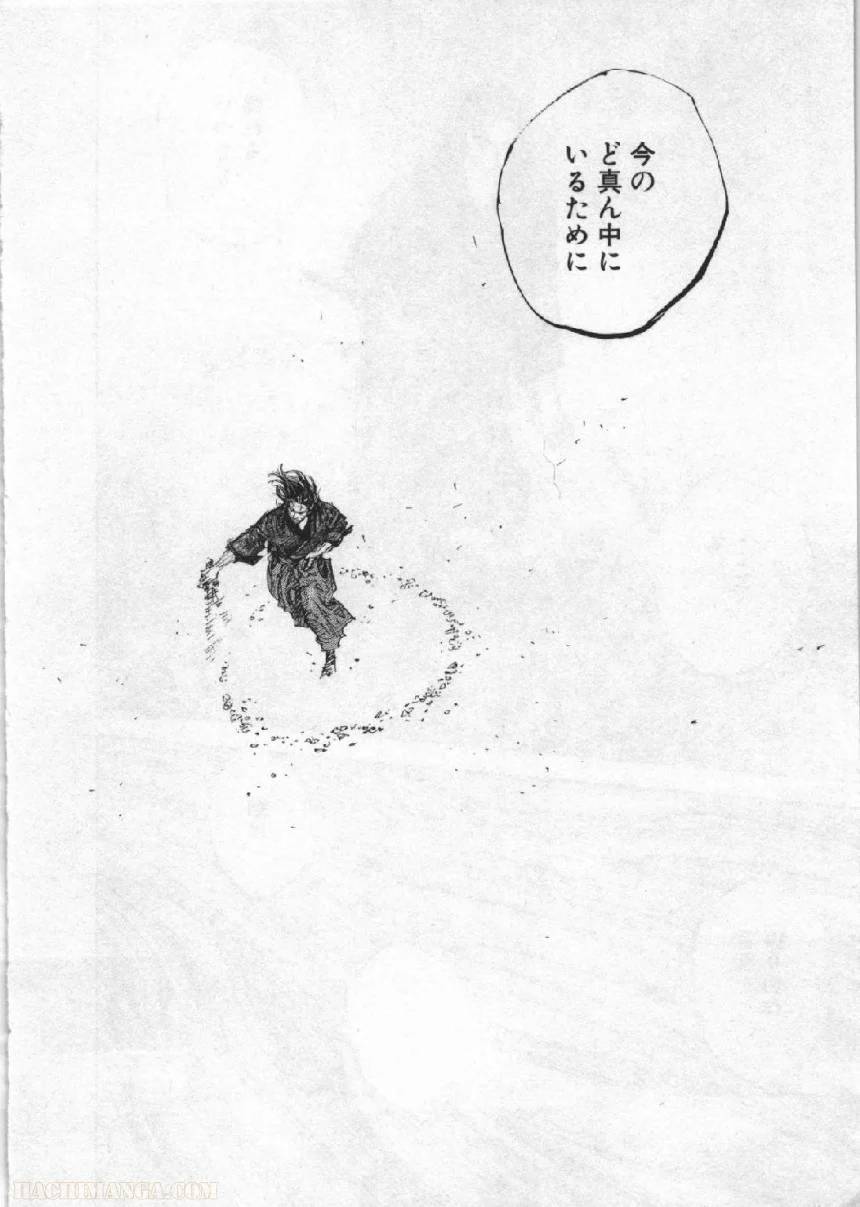 今の
ど真ん中に
いるために
HACHIMANGA.COM